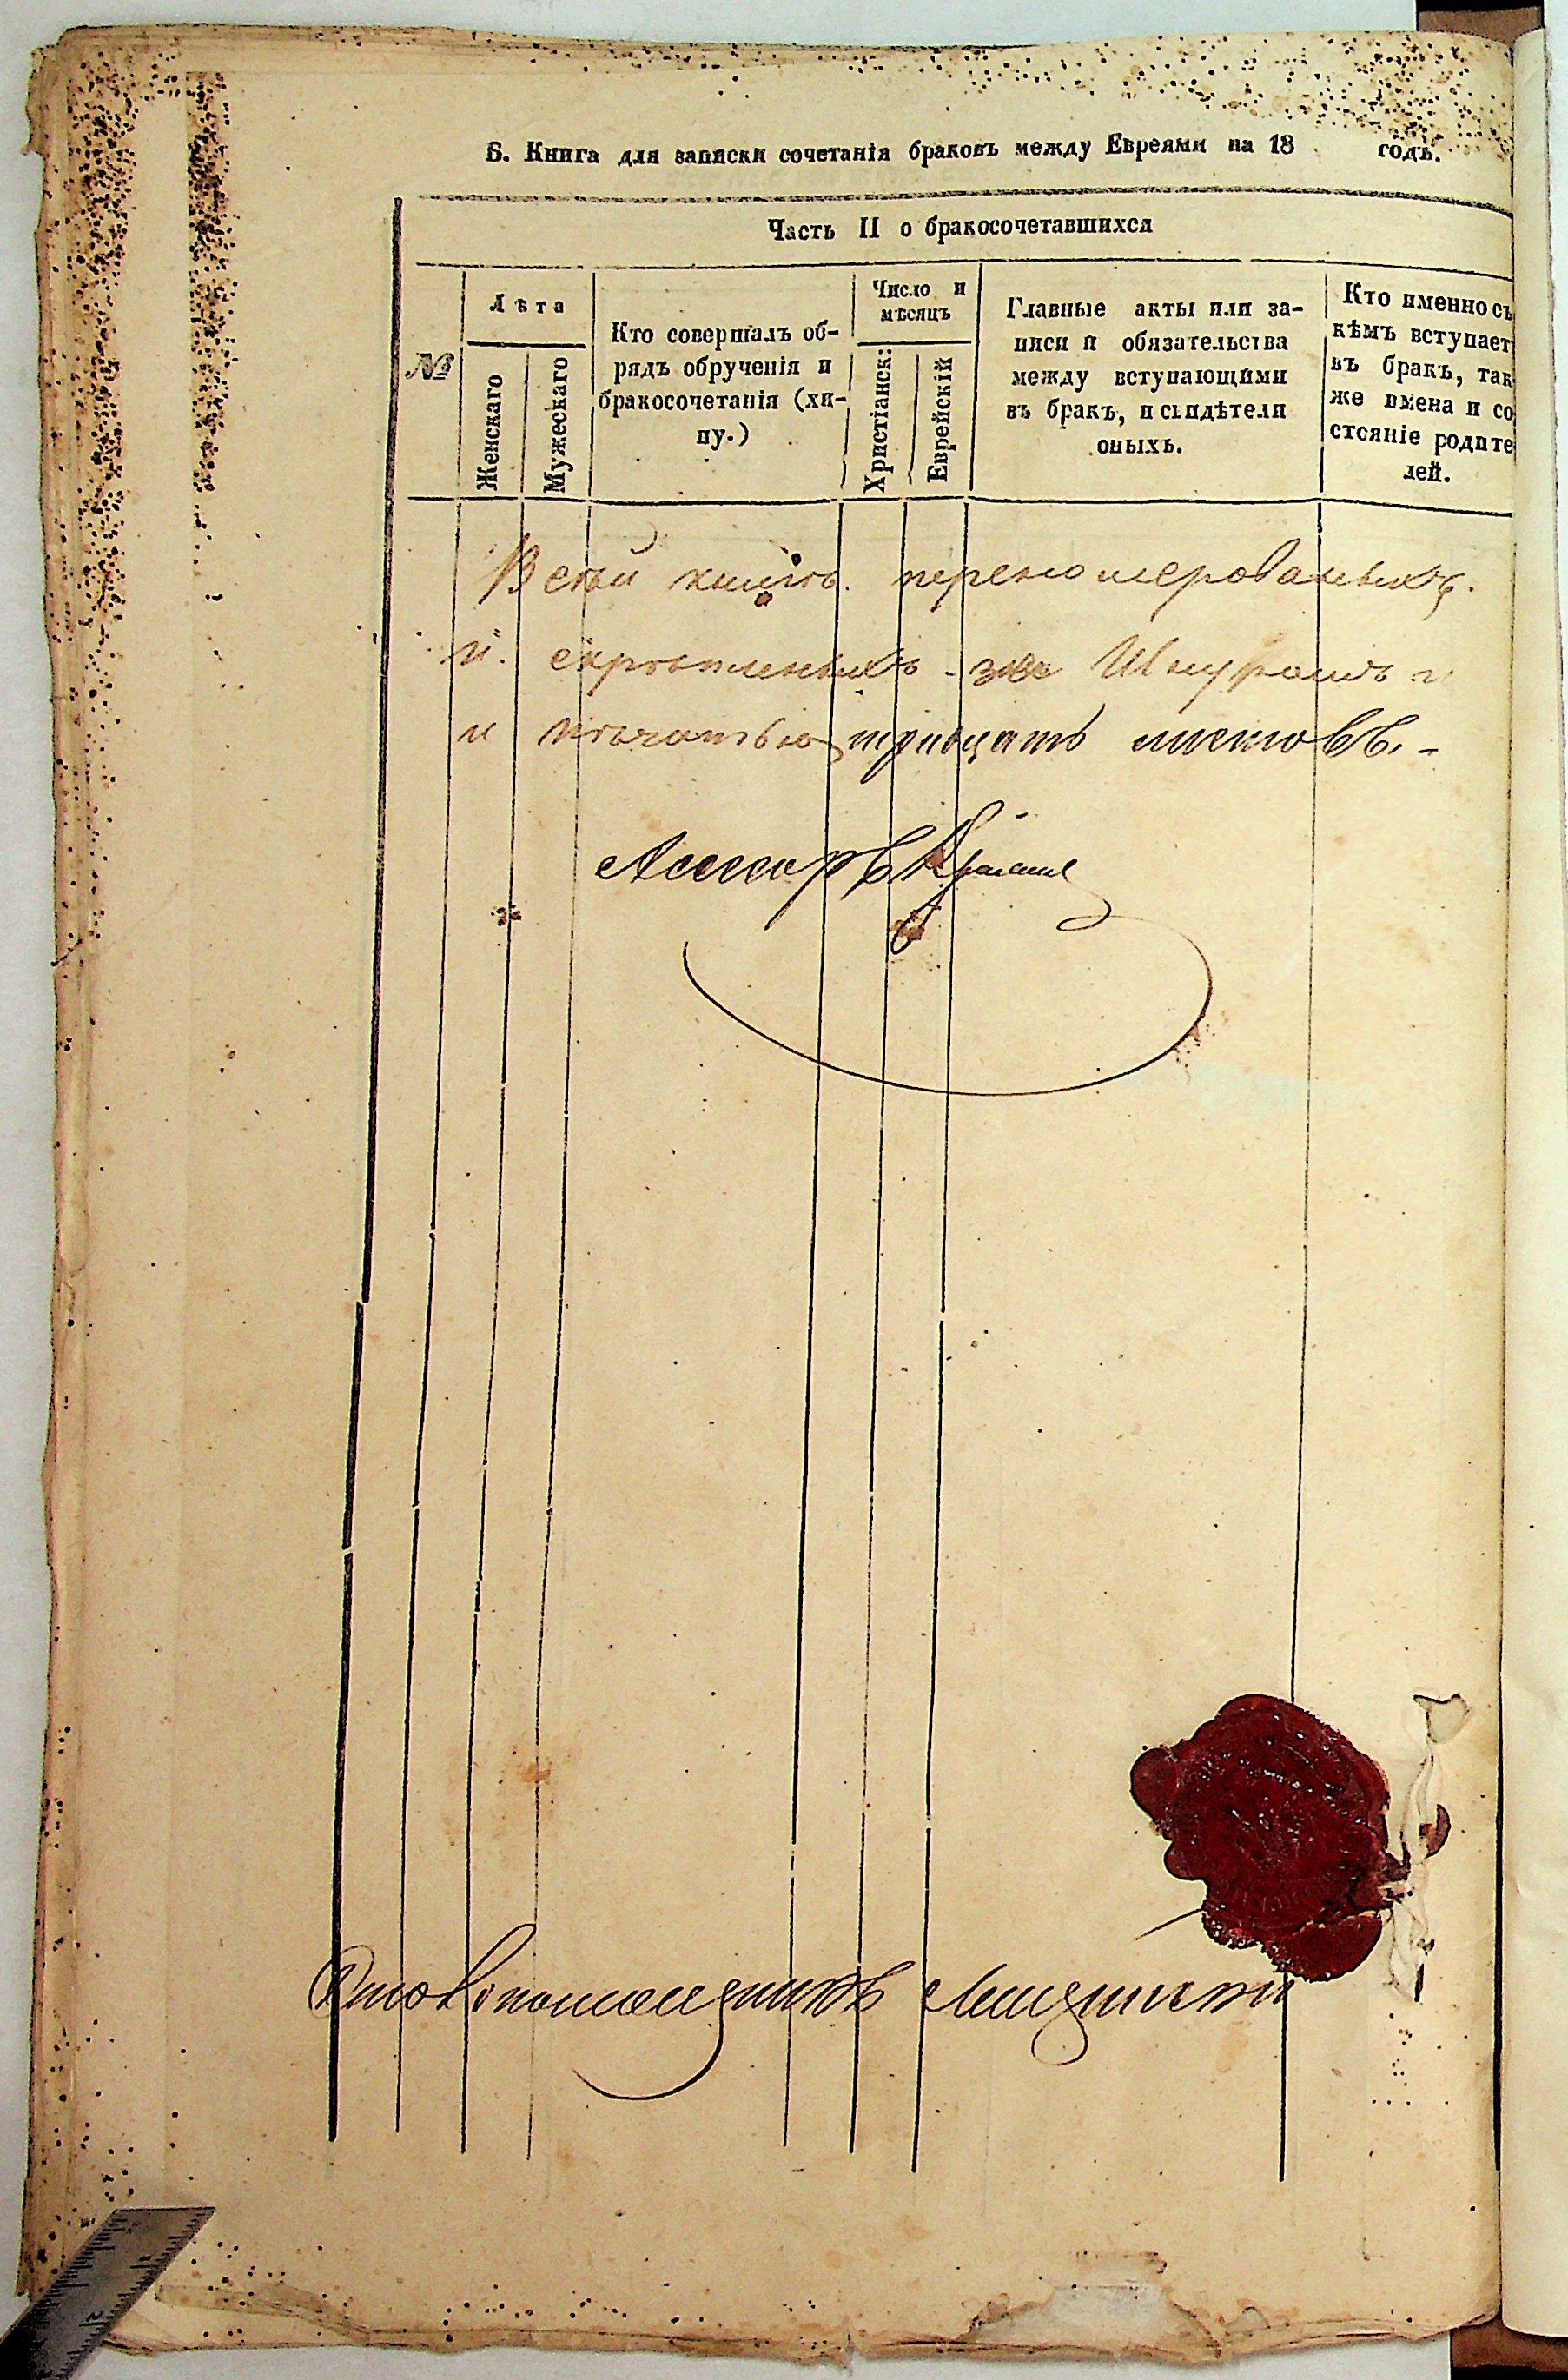 Б. Книга для записки сочетанія браковъ между Евреями на 18 годъ.
Часть II о бракосочетавшихся
№
Лѣта
Женскаго
Мужескаго
Кто совершалъ об-
рядъ обрученія и
бракосочетанія (хи-
пу.)
Число и
мѣсяцъ
Христіанск:
Еврейскій
Главные акты или за-
писи и обязательства
между вступающими
въ бракъ, и свидѣтели
оныхъ.
Кто именно съ
кѣмъ вступает
въ бракъ, так
же имена и со
стояніе родите
лей.
В сей книгѣ перенумерованныхъ
и скрѣпленныхъ за Шнуромъ
и печатью тридцать листовъ. -
Асесоръ
Столоначальникъ